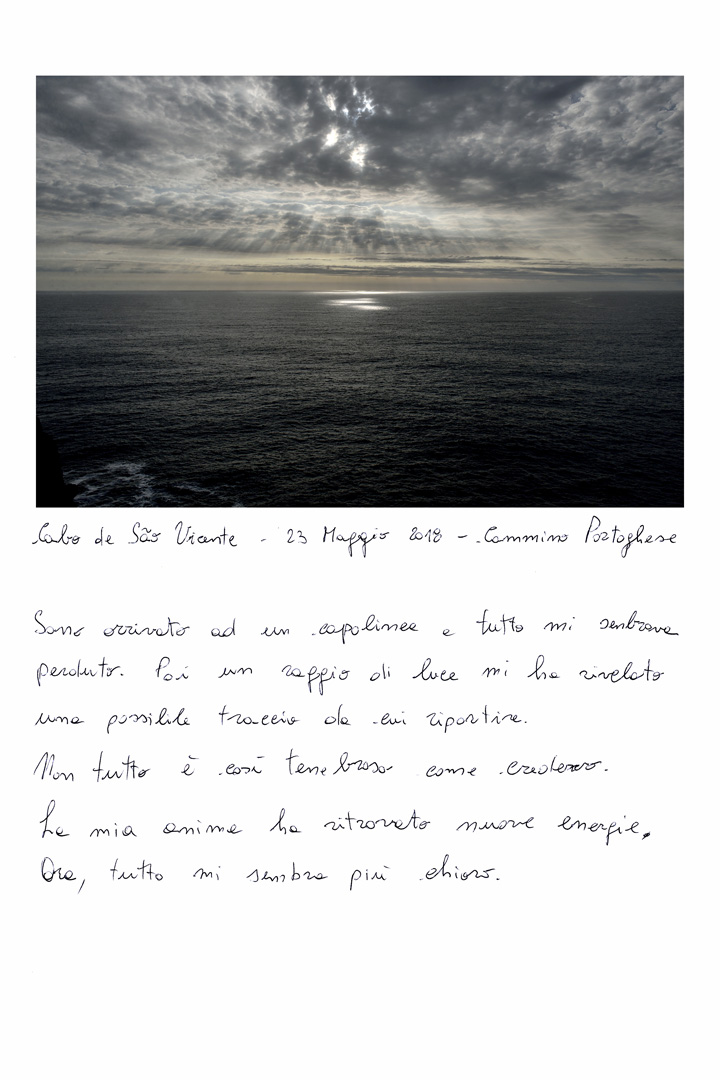 Cabo de São Vicente - 23 Maggio 2018 - Cammino Portoghese
Sono arrivato ad un capolinea e tutto mi sembrava
perduto. Poi un raggio di luce mi ha rivelato
una possibile traccia da cui ripartire.
Non tutto è così tenebroso come credevo.
La mia anima ha ritrovato nuove energie.
Ora, tutto mi sembra più chiaro.